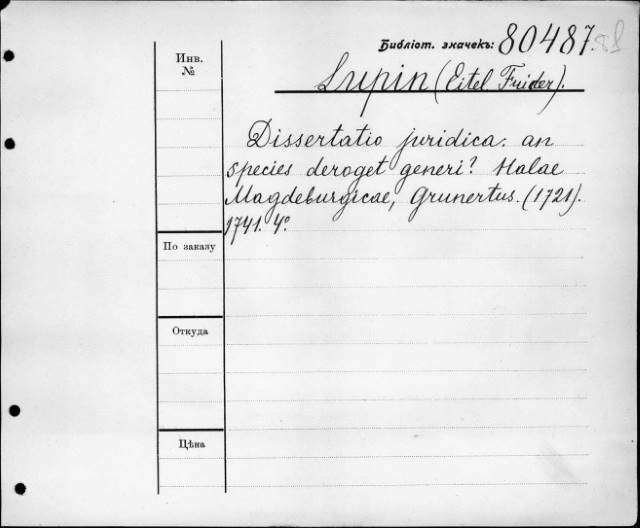 Библіот. значекъ: 80487.
Инв.
№
Lupin (Eitel Frider).
Dissertatio juridica: an
species deroget generi? Halae
Magdeburgicae, Grunertus. (1721).
1741. 4º.
По заказу
Откуда
Цѣна